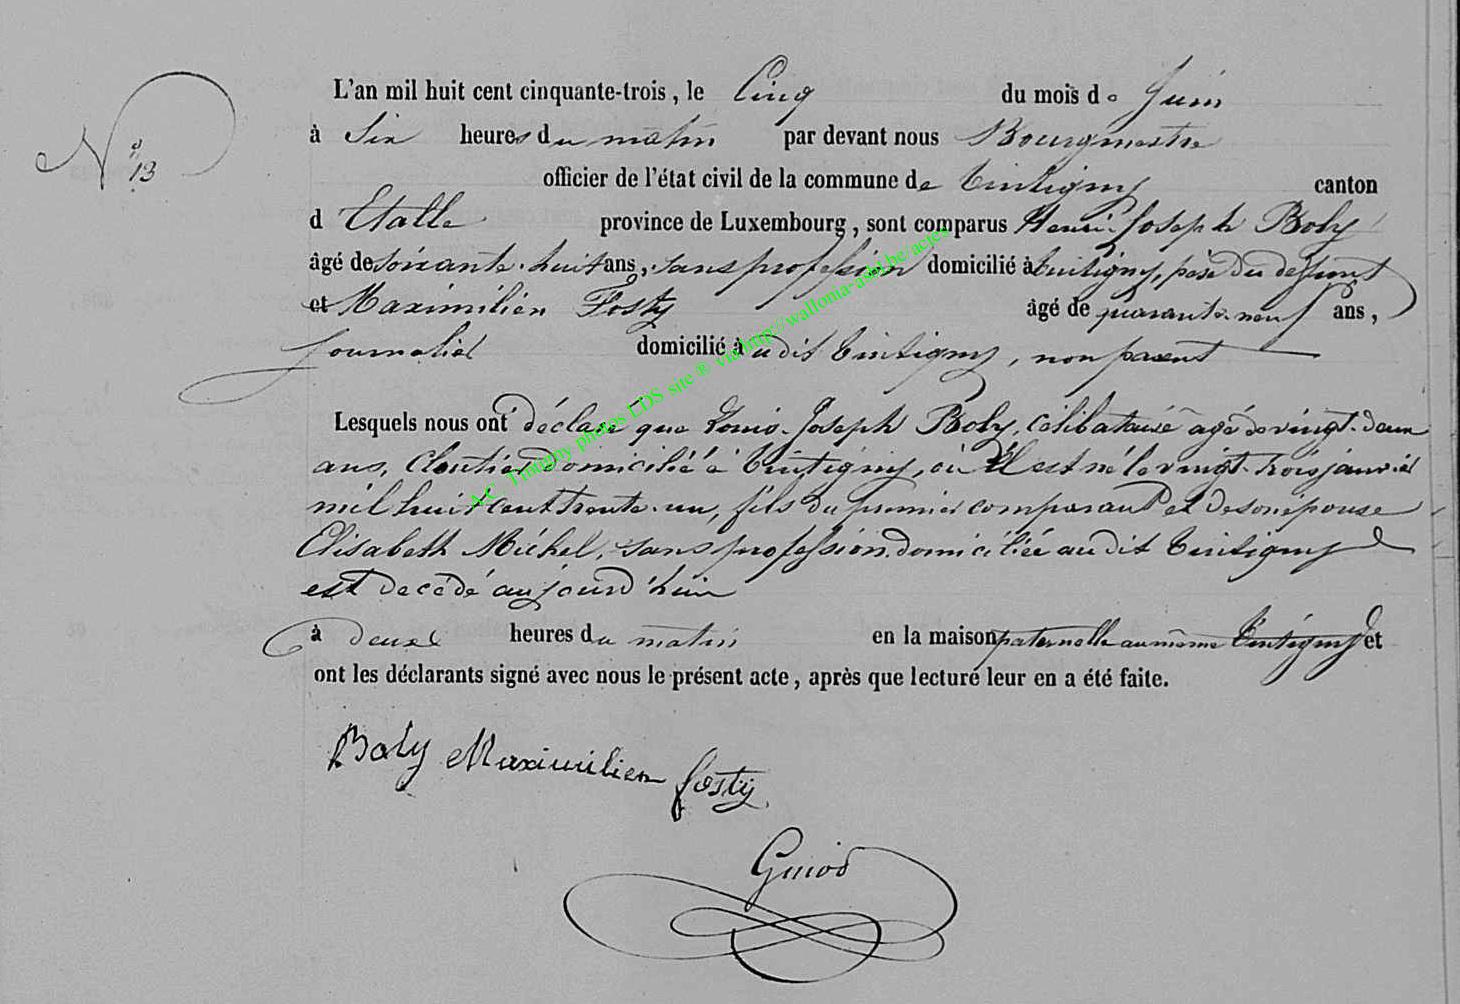 N° 13
L'an mil huit cent cinquante-trois, le Cinq du mois de Juin
à Six heures du matin par devant nous Bourgmestre
officier de l'état civil de la commune de Tintigny canton
d Etalle province de Luxembourg, sont comparus Henri-Joseph Boly
âgé de soixante-huit ans, sans profession domicilié à Tintigny, père du defunt
et Maximilien Fosty âgé de quarante-neuf ans,
journalier domicilié à udit Tintigny, non parent
Lesquels nous ont déclaré que Louis-Joseph Boly, célibataire âgé de vingt-deux
ans, Cloutier domicilié à Tintigny, où il est né le vingt-trois janvier
mil huit cent trente-un, fils du premier comparant et de son épouse
Elisabeth Michel, sans profession domiciliée audit Tintigny
est decédé aujourd'hui
à deux heures du matin en la maison paternelle au même Tintigny et
ont les déclarants signé avec nous le présent acte, après que lecture leur en a été faite.
Boly Maximilien fosty
Guiod
AC Tintigny photos LDS site ® via http://wallonia-asbl.be/actes